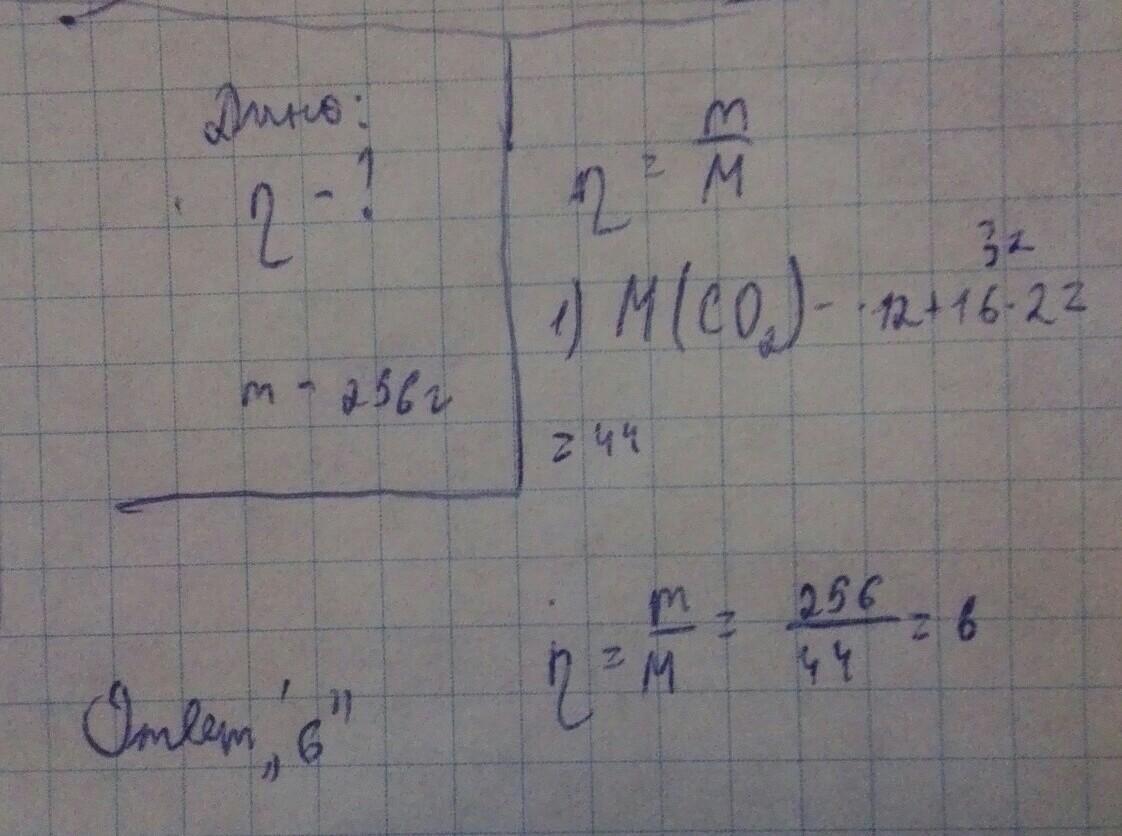 Дано:
η - ?
m - 256г
η = m/M
32
1) M(CO₂) - 12 + 16 · 2 =
= 44
η = m/M = 256/44 = 6
Ответ: „6”